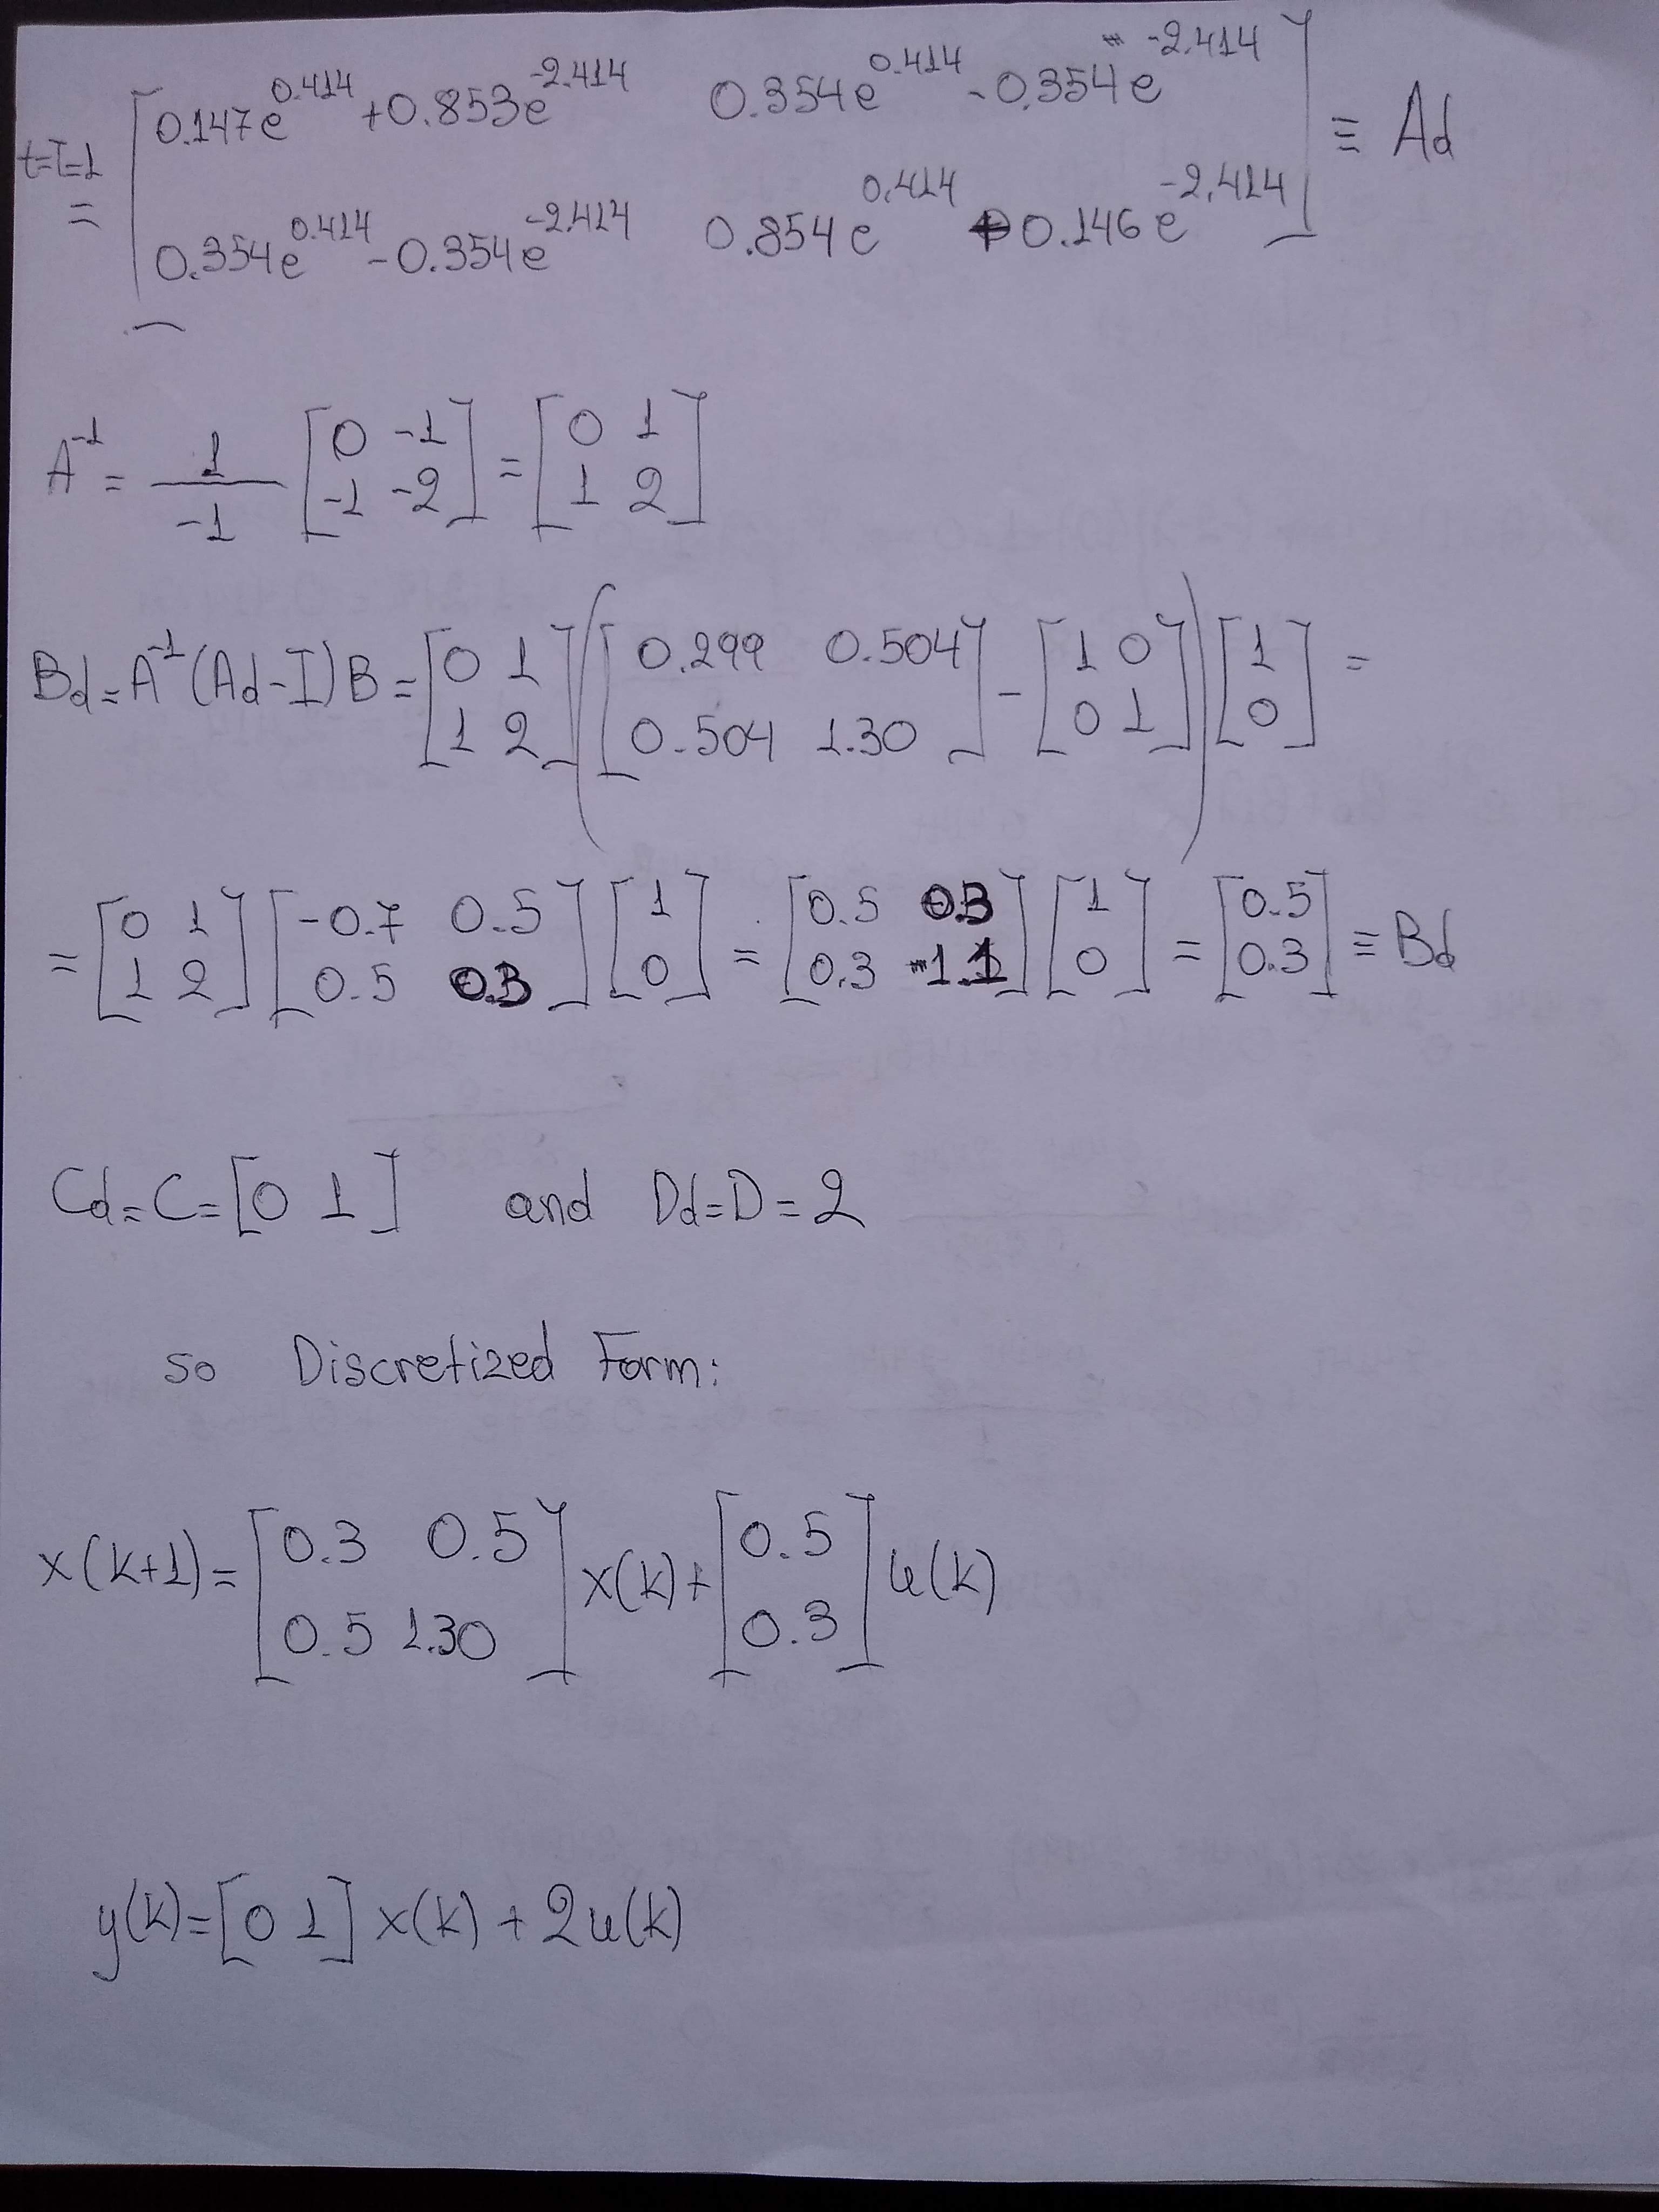 t=T=1 = [0.147e^0.414 +0.853e^-2.414 0.354e^0.414 -0.354e^-2.414
0.354e^0.414 -0.354e^-2.414 0.854e^0.414 +0.146e^-2.414] ≡ Ad
A^-1 = 1/-1 [0 -1
-1 -2] = [0 1
1 2]
Bd=A^-1(Ad-I)B=[0 1
1 2]([0.299 0.504
0.504 1.30]-[1 0
0 1])[1
0]=
=[0 1
1 2][-0.7 0.5
0.5 0.3][1
0]=[0.5 0.3
0.3 1.1][1
0]=[0.5
0.3]≡Bd
Cd=C=[0 1] and Dd=D=2
so Discretized Form:
x(k+1)=[0.3 0.5
0.5 1.30]x(k)+[0.5
0.3]u(k)
y(k)=[0 1]x(k)+2u(k)